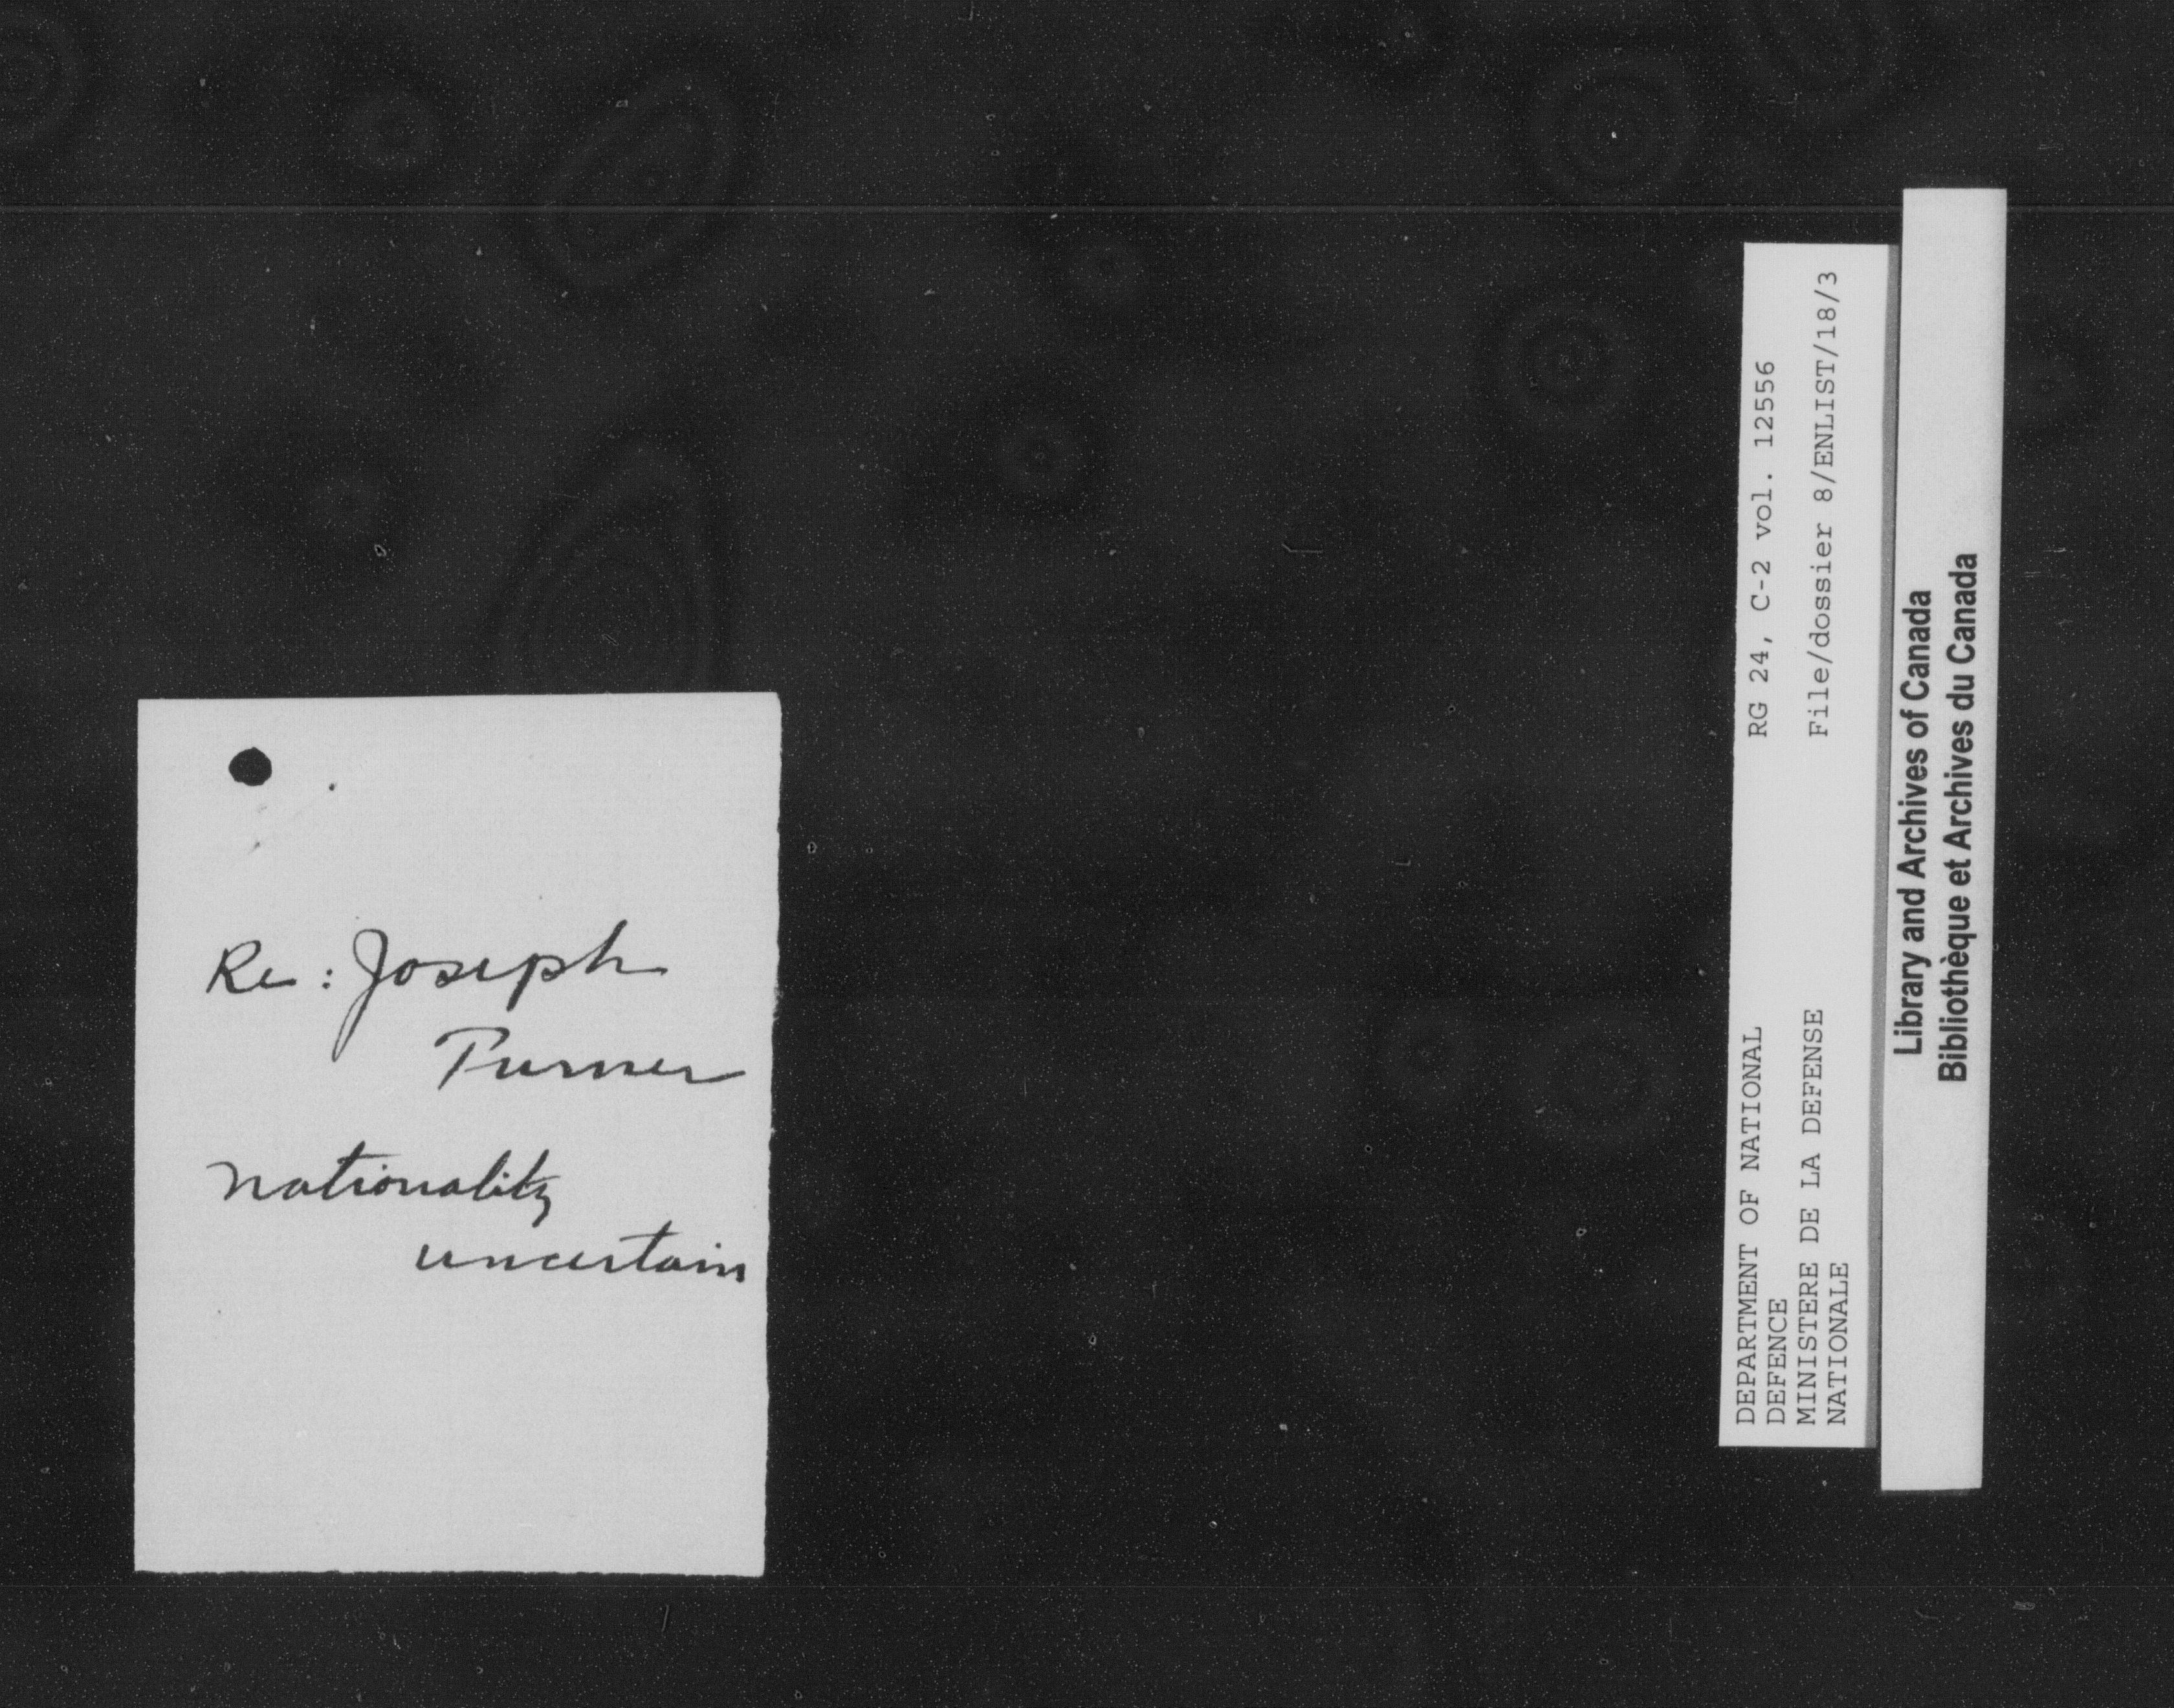 Re: Joseph
Turner
nationality
uncertain
DEPARTMENT OF NATIONAL
DEFENCE
MINISTERE DE LA DEFENSE
NATIONALE
RG 24, C-2 vol. 12556
File/dossier 8/ENLIST/18/3
Library and Archives of Canada
Bibliothèque et Archives du Canada